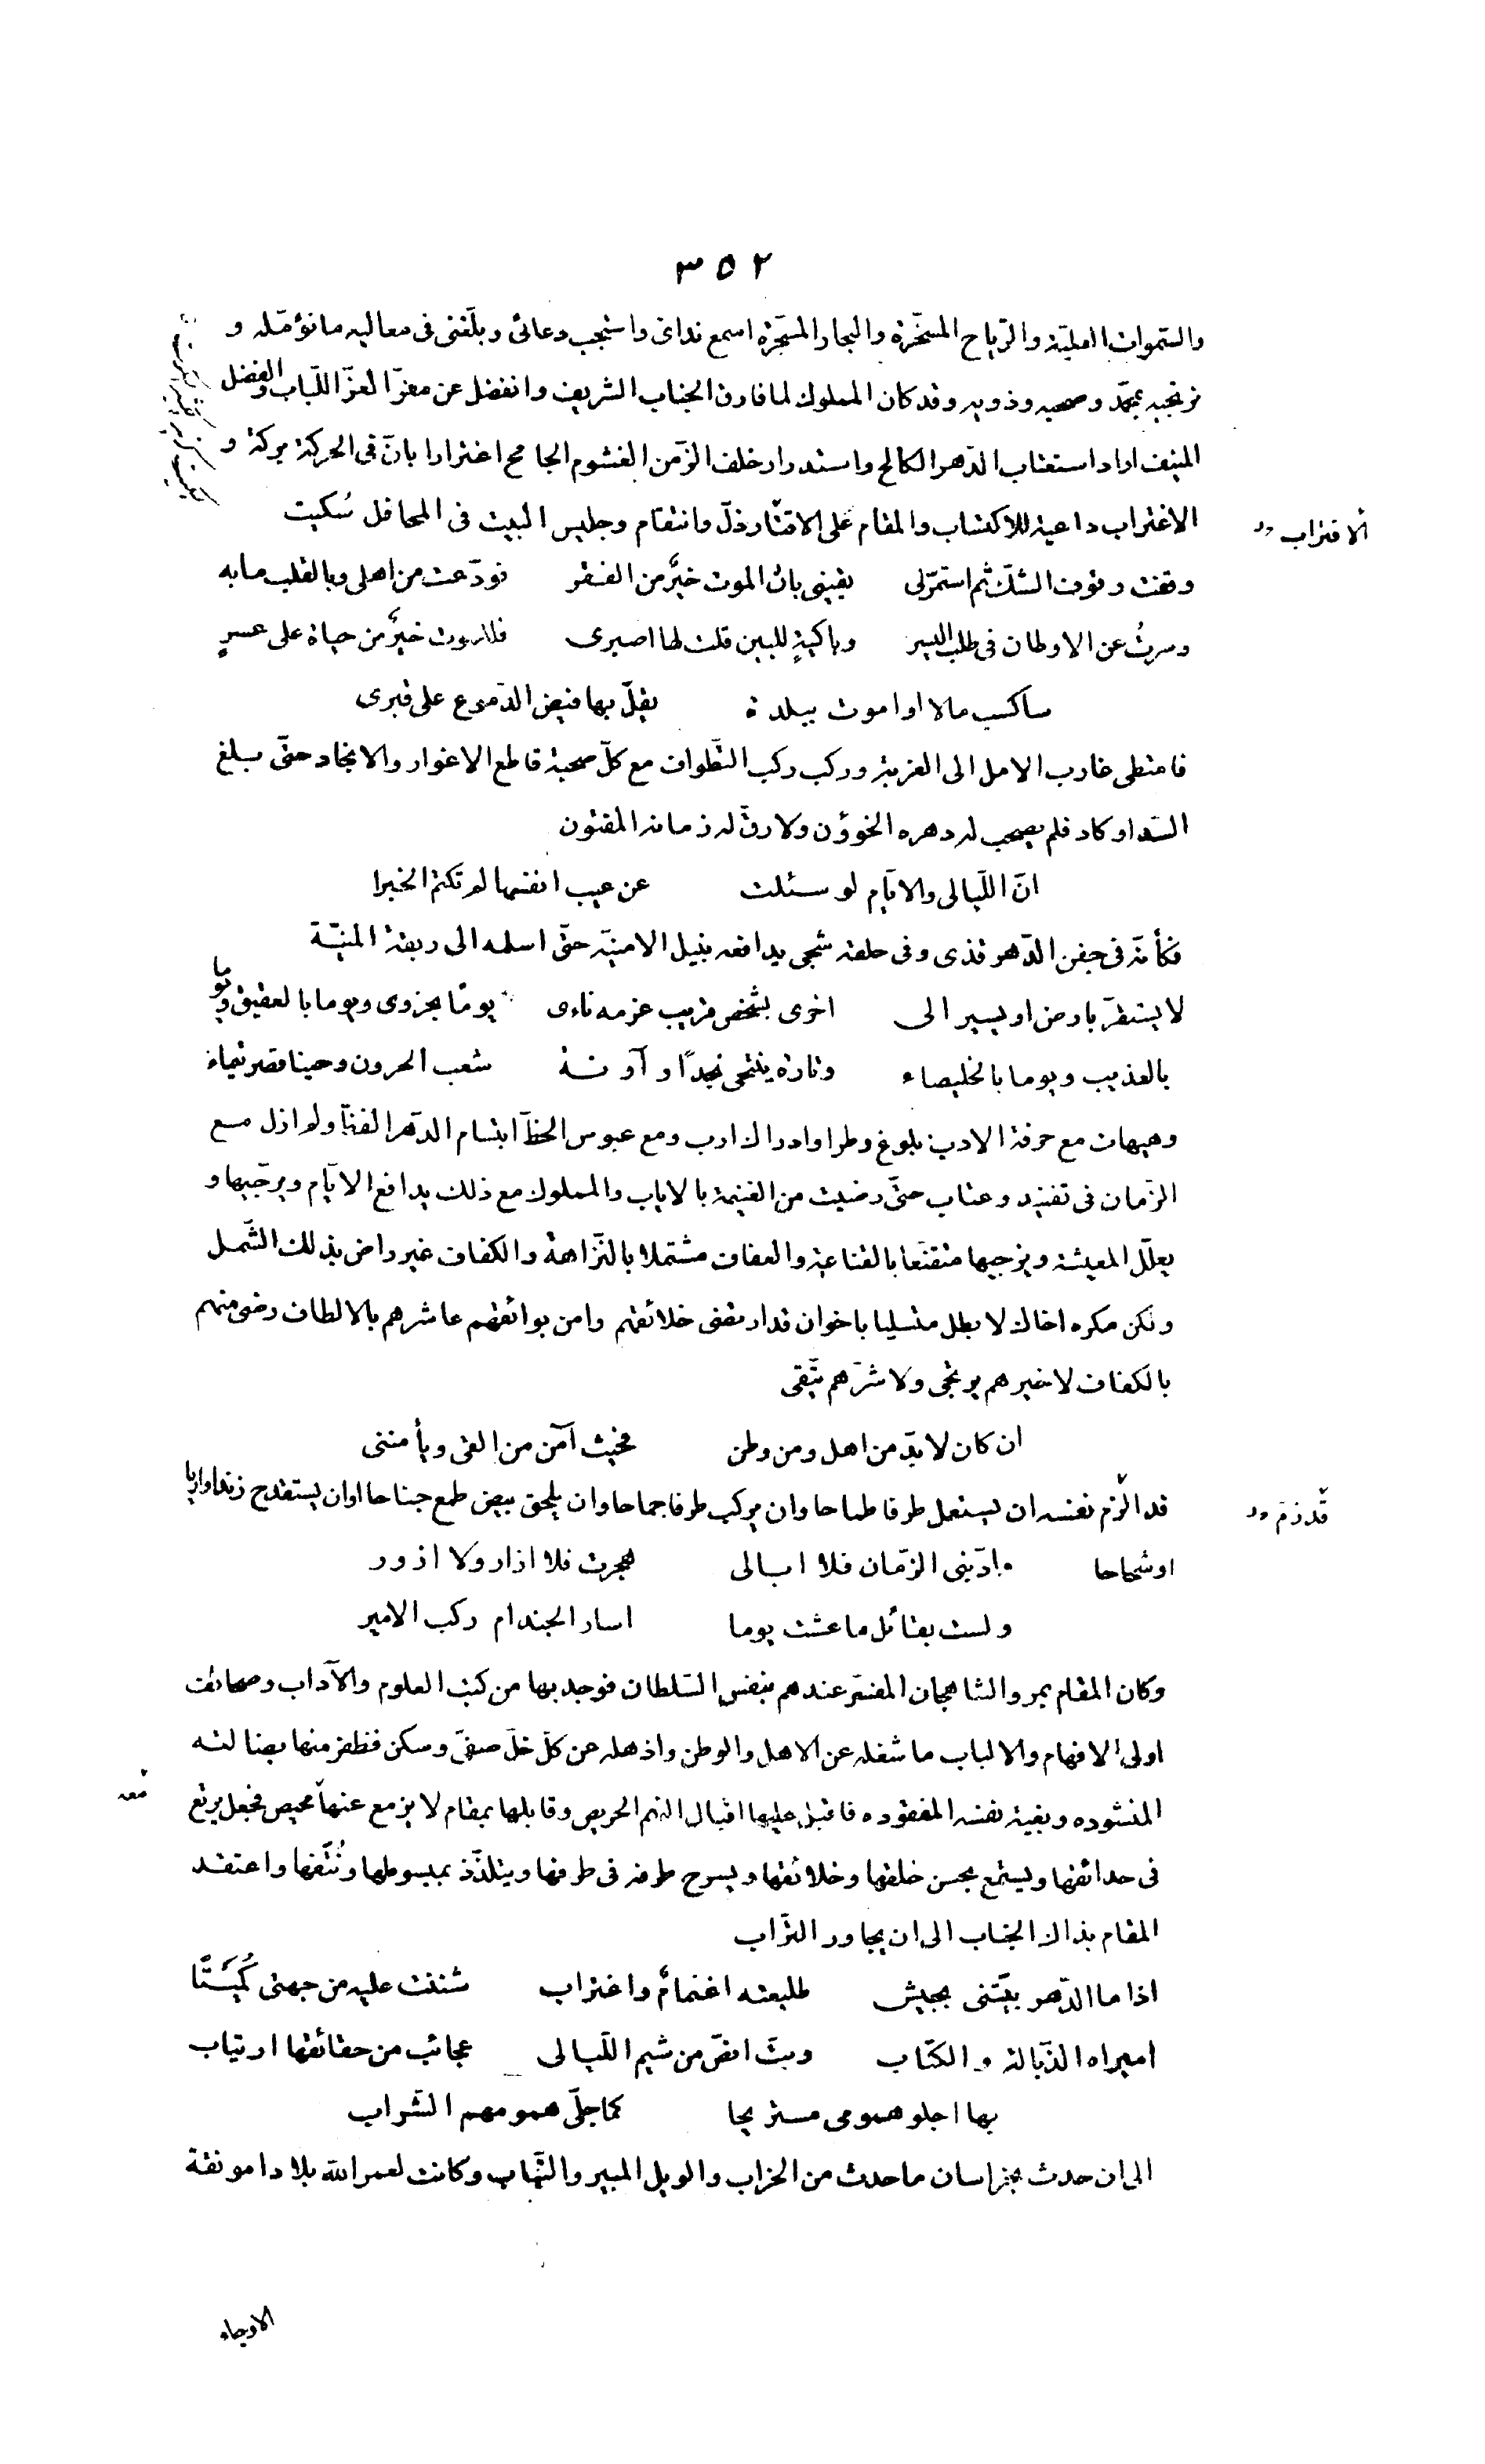 ٣٥٢
والسّموات العليّة والرّياح المسخّرة والبحار المسجّرة اسمع ندائى واستجب دعائى وبلّغنى فى معاليه ما نؤمّله و
نرتجيه بمحمّد وصحبه وذويه وقد كان المملوك لما فارق الجناب الشريف وانفصل عن مقرّ العزّ اللّباب والفضل
المنيف اراد استعتاب الدّهر الكالح واستدرار خلف الزّمن الغشوم الجامح اغترارا بانّ فى الحركة بركة و
الاغتراب داعية للاكتساب والمقام على الاقتار ذلّ وانتقام وجليس البيت فى المحافل سُكيت
الاقتراب
وقفت وقوف الشكّ ثم استمرّ لى يقينى بان الموت خيرٌ من الفقر فودّعت من اهلى وبالقلب ما به
وسرتُ عن الاوطان فى طلب اليسر وباكيةٍ للبين قلت لها اصبرى فللموت خيرٌ من حياة على عسرٍ
ساكسب مالا او اموت ببلدة يقلّ بها فيض الدّموع على قبرى
فامتطى غارب الامل الى الغربة وركب ركب التطواف مع كلّ صحبة قاطع الاغوار والانجاد حتّى بلغ
السّد او كاد فلم يصحب له دهره الخوؤن ولا رقّ له زمانه المفتون
انّ اللّيالى والايّام لو سئلت عن عيب انفسها لم تكتم الخبرا
فكأنّه فى جفن الدّهر قذى وفى حلقه شجى يدافعه بنيل الامنيّة حتّى اسلمه الى ربقة المنيّة
لا يستقرّ بارض او يسير الى اخرى بشخص قريب عزمه ناءى يومًا بحزوى ويوما بالعقيق ويوما
بالعذيب ويوما بالخليصاء وتارة ينتحى نجدًا وآونة شعب الحزون وحينا قصر تيماء
وهيهات مع حرفة الادب بلوغ وطر او ادراك ارب ومع عبوس الحظّ ابتسام الدّهر الفظّ ولم ازل مع
الزّمان فى تفنيد وعتاب حتّى رضيت من الغنيمة بالاياب والمملوك مع ذلك يدافع الايّام ويرجّيها و
يعلّل المعيشة ويزجيها متقنّعا بالقناعة والعفاف مشتملا بالنّزاهة والكفاف غير راض بذلك الشّمل
ولكن مكره اخاك لا بطل متسليا باخوان قد ارتضى خلائقهم وامن بوائقهم عاشرهم بالالطاف رضى منهم
بالكفاف لا خيرهم يرتجى ولا شرّهم يتّقى
ان كان لا بدّ من اهل ومن وطن فحيث آمن من القى ويأمننى
قد الزم نفسه ان يستعمل طرفا طماحا وان يركب طرفا جماحا وان يلحق بيض طمع جناحا او ان يستقدح زندا واريا
قد زم
او شحاحا وادّبنى الزّمان فلا ابالى هجرت فلا ازار ولا ازور
ولست بقائل ما عشت يوما اسار الجند ام ركب الامير
وكان المقام بمرو الشاهجان المفسّر عندهم بنفس السّلطان فوجد بها من كتب العلوم والآداب وصحائف
اولى الافهام والالباب ما شغله عن الاهل والوطن واذهله عن كلّ خلّ صفىّ وسكن فظفر منها بضالته
المنشوده وبغية نفسه المفقوده فاقبل عليها اقبال النهم الحريص وقابلها بمقام لا يزمع عنها محيص فجعل يرتع
معه
فى حدائقها ويستمتع بحسن خلقها وخلائقها ويسرح طرفه فى طرفها ويتلذّذ بمبسوطها ونُتَفها واعتقد
المقام بذاك الجناب الى ان يجاور التّراب
اذا ما الدّهر بيّتنى بجيش طليعته اغتمامٌ واغتراب شننت عليه من جهتى كُمَيْنًا
اميراه الذّبالة والكتاب وبتّ انصّ من شيم اللّيالى عجائب من حقائقها ارتياب
بها اجلو همومى مستريحا كما جلّى همومهم الشّراب
الى ان حدث بخراسان ما حدث من الخراب والويل المبير والتّباب وكانت لعمر الله بلادا مونقة
الارجاء